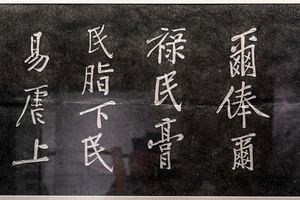 爾俸爾
祿民膏
民脂下民
易虐上